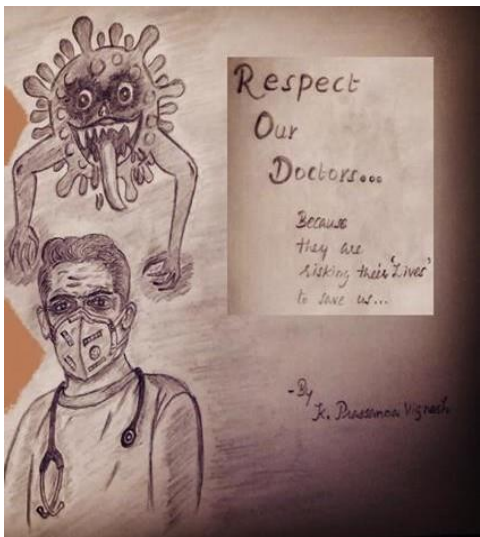 Respect
Our
Doctors...
Because
they are
risking their 'Lives'
to save us...
-By
K. Prasanna Vignesh